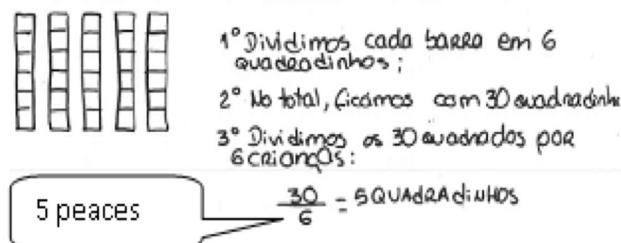 1º Dividimos cada barra em 6
quadradinhos;
2º No total, ficamos com 30 quadradinh
3º Dividimos os 30 quadrados por
6 crianças:
30
6
= 5 QUADRADINHOS
5 peaces